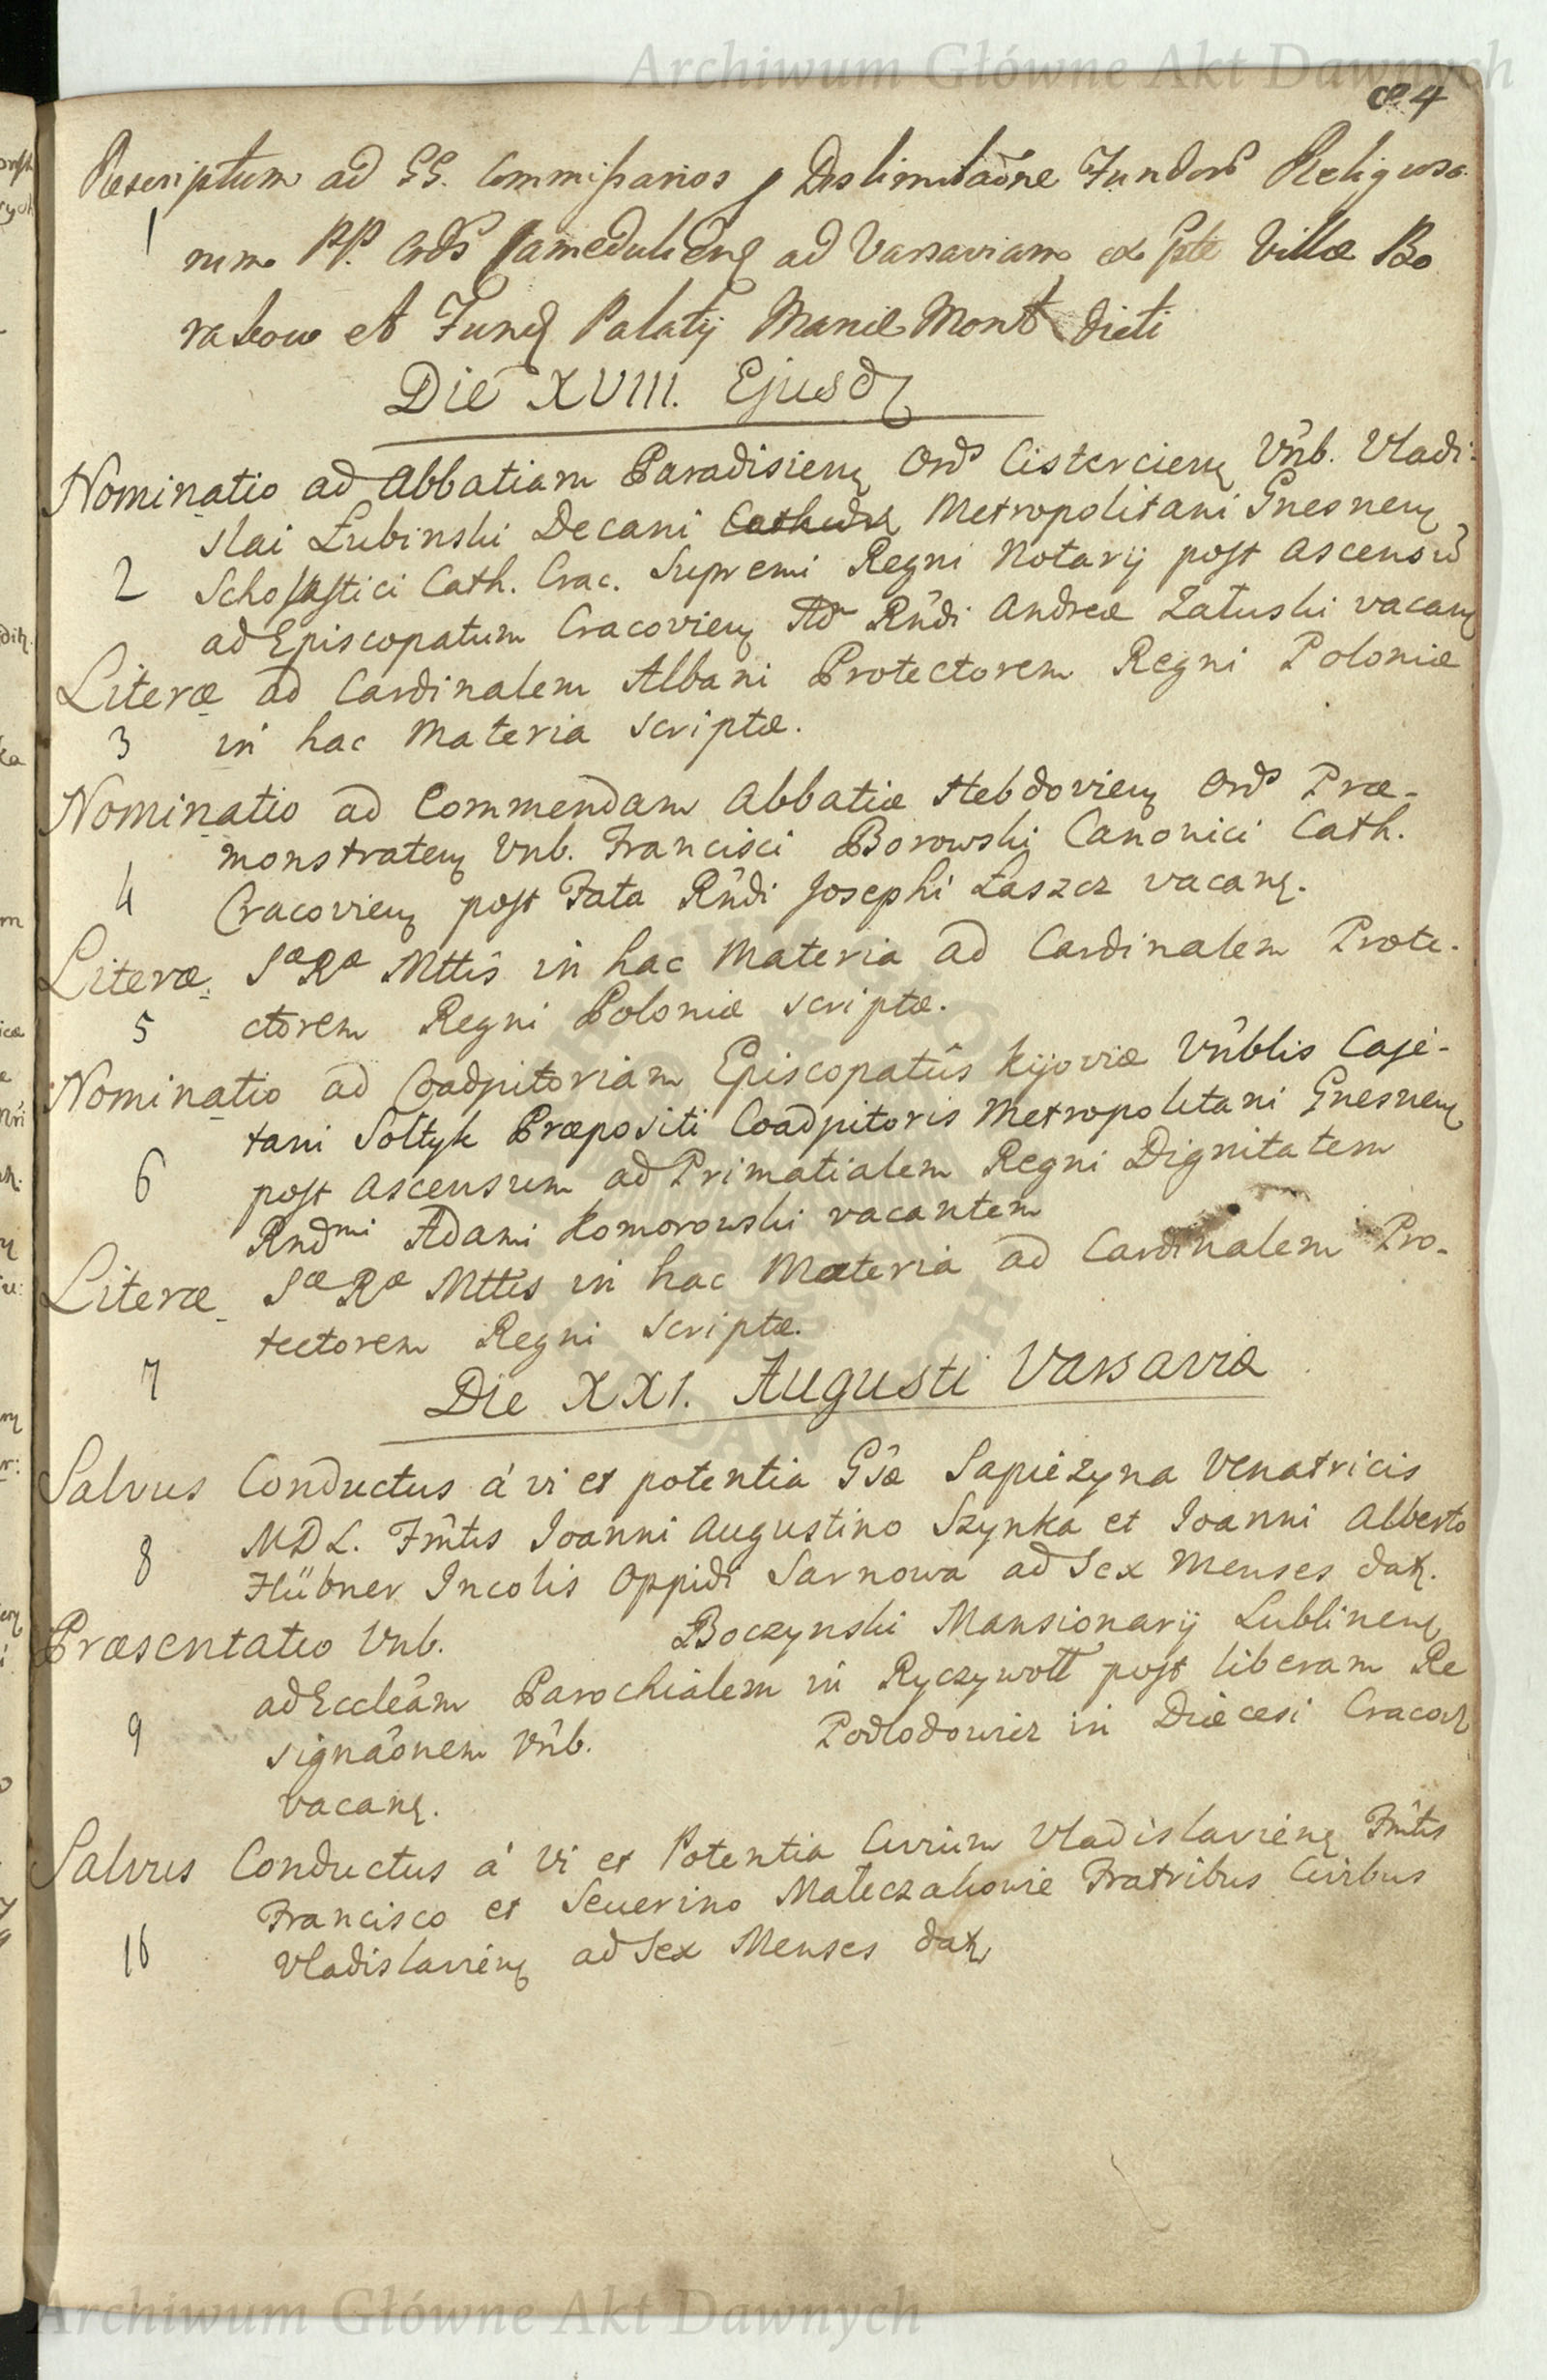 Archiwum Główne Akt Dawnych
4
Rescriptum ad GG. Commissarios p Dislimitaõne Fundorũ Religioso
1 rum PP. Ords Camedulien ad Varsaviam ex pte Villæ Bo
rakow et Fund Palatij Mariæ Mont dicti
Die XVIII. Ejusd
Nominatio ad Abbatiam Paradisien Ords Cistercien Vñb. Vladi-
slai Łubinski Decani Metropolitani Gnesnen
2 Scholastici Cath. Crac. Supremi Regni Notarij post Ascensũ
ad Episcopatum Cracovien Rñdi Andreæ Załuski vacan
Literæ ad Cardinalem Albani Protectorem Regni Poloniæ
3 in hac Materia scriptæ.
Nominatio ad Commendam Abbatiæ Hebdovien Ords Præ-
monstraten Vnb. Francisci Borowski Canonici Cath.
4 Cracovien post Fata Rñdi Josephi Łaszcz vacan.
Literæ Sæ Ræ Mttis in hac Materia ad Cardinalem Prote-
5 ctorem Regni Poloniæ scriptæ.
Nominatio ad Coadjutoriam Episcopatûs Kijoviæ Vñblis Caje-
tani Sołtyk Præpositi Coadjutoris Metropolitani Gnesnen
6 post Ascensum ad Primatialem Regni Dignitatem
Rndmi Adami Komorowski vacantem
Literæ Sæ Ræ Mttis in hac Materia ad Cardinalem Pro-
tectorem Regni scriptæ.
7
Die XXI. Augusti Varsaviæ
Salvus Conductus á vi et potentia Gsæ Sapiezyna Venatricis
MDL. Fmtis Joanni Augustino Szynka et Joanni Alberto
8 Hübner Incolis Oppidi Sarnowa ad Sex Menses dat.
Præsentatio Vnb. Boczynski Mansionarij Lublinen
ad Eccleâm Parochialem in Ryczywołł post liberam Re
9 signaõnem Vñb. Podlodowicz in Diæcesi Cracov
vacan.
Salvus Conductus á vi et Potentia Civium Vladislavien Fmtis
Francisco et Severino Mateczakowie Fratribus Civibus
10 Vladislavien ad Sex Menses dat
Archiwum Główne Akt Dawnych